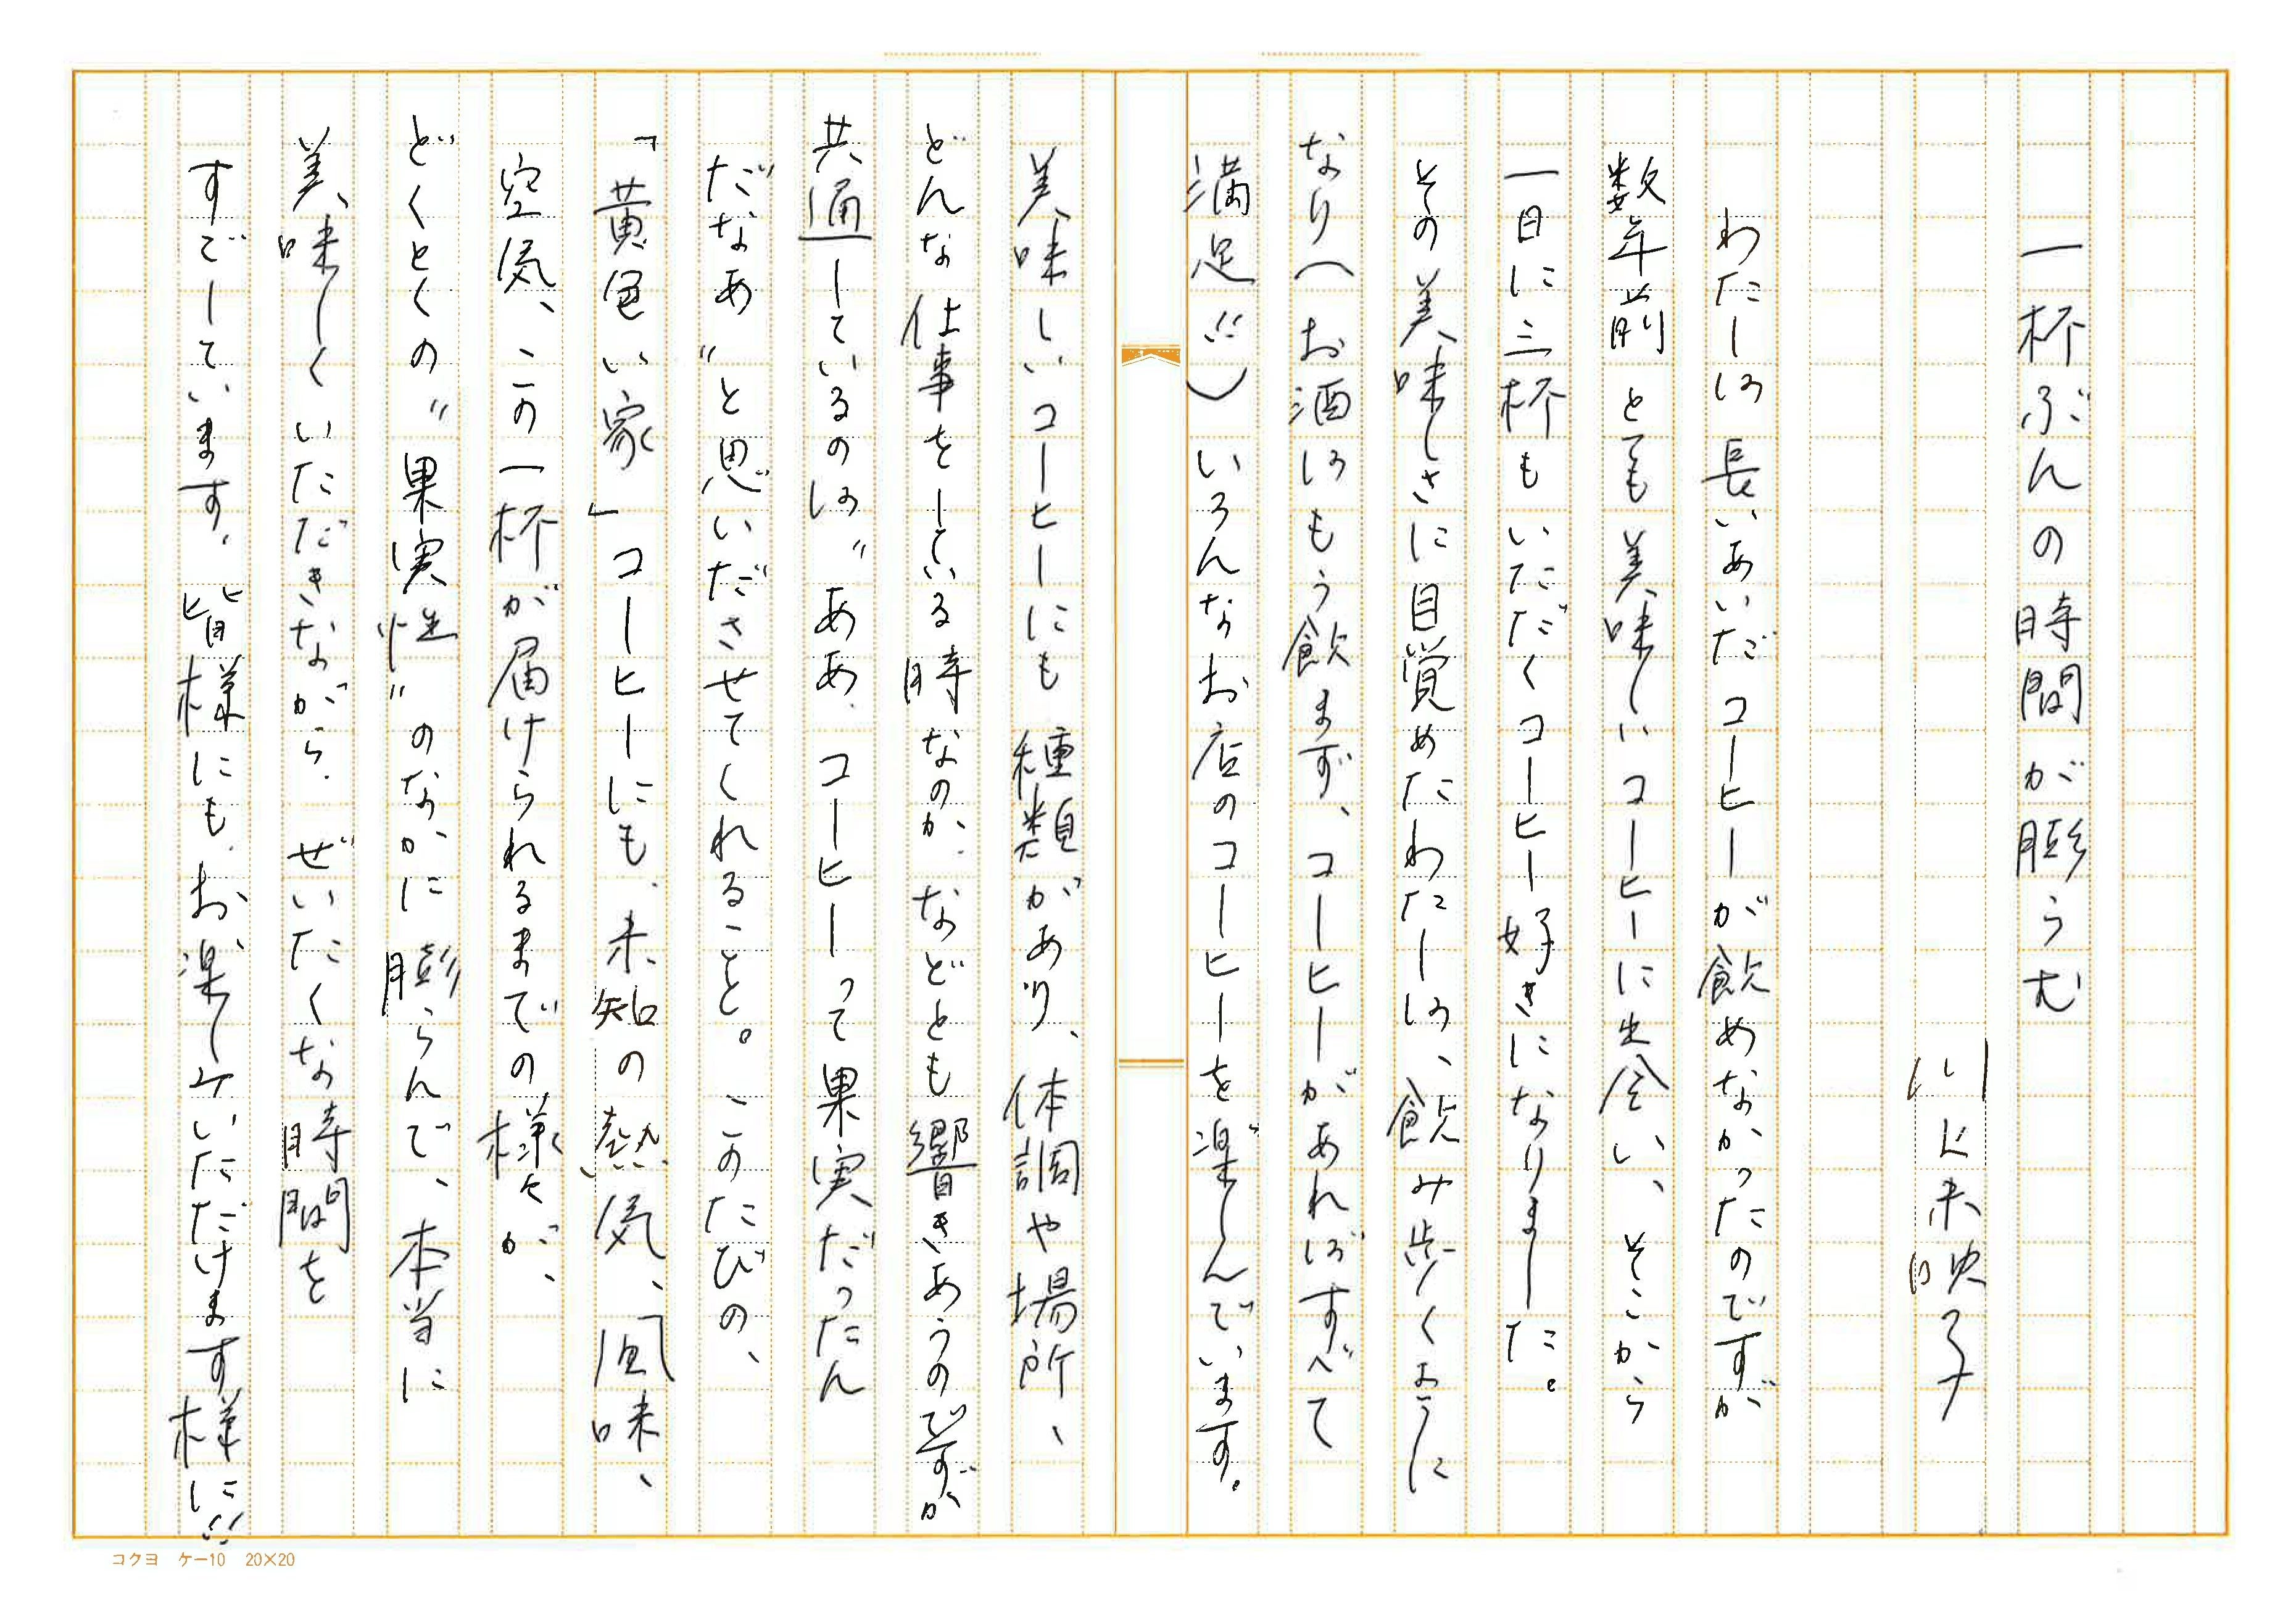 一杯ぶんの時間が膨らむ
川上未映子
わたしは長いあいだコーヒーが飲めなかったのですが
数年前とても美味しいコーヒーに出会い、そこから
一日に三杯もいただくコーヒー好きになりました。
その美味しさに目覚めたわたしは、飲み歩くように
なり（お酒はもう飲まず、コーヒーがあればすべて
満足!!）いろんなお店のコーヒーを楽しんでいます。
美味しいコーヒーにも種類があり、体調や場所、
どんな仕事をしている時なのか、などとも響きあうのですが、
共通しているのは〝ああ、コーヒーって果実だったん
だなあ〟と思いださせてくれること。このたびの、
「黄色い家」コーヒーにも、未知の熱気、風味、
空気、この一杯が届けられるまでの様々が、
どくとくの〝果実性〟のなかに膨らんで、本当に
美味しくいただきながら、ぜいたくな時間を
すごしています。皆様にも、お楽しみいただけます様に!!
コクヨ ケー10 20×20